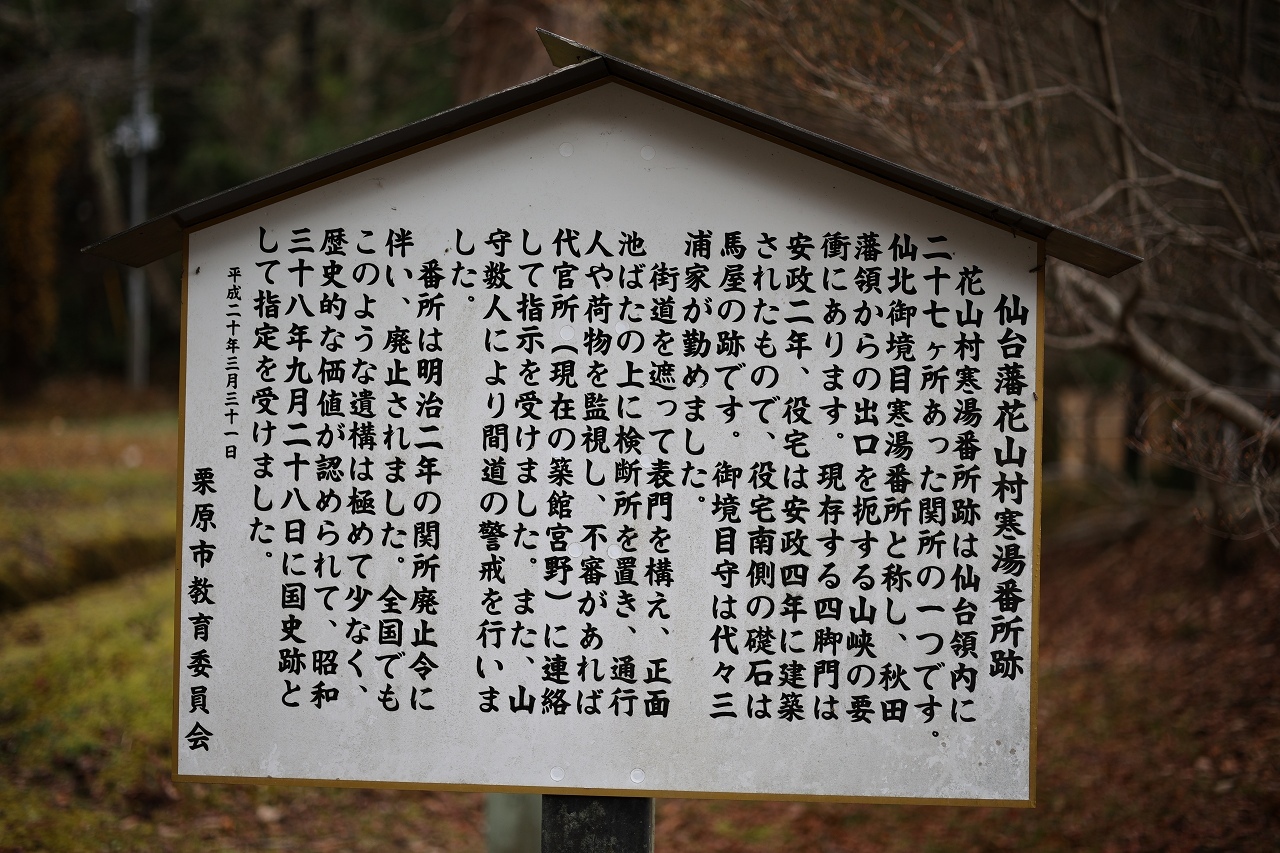 仙台藩花山村寒湯番所跡
花山村寒湯番所跡は仙台領内に
二十七ヶ所あった関所の一つです。
仙北御境目寒湯番所と称し、秋田
藩領からの出口を扼する山峡の要
衝にあります。現存する四脚門は
安政二年、役宅は安政四年に建築
されたもので、役宅南側の礎石は
馬屋の跡です。御境目守は代々三
浦家が勤めました。
街道を遮って表門を構え、正面
池ばたの上に検断所を置き、通行
人や荷物を監視し、不審があれば
代官所（現在の築館宮野）に連絡
して指示を受けました。また、山
守数人により間道の警戒を行いま
した。
番所は明治二年の関所廃止令に
伴い、廃止されました。全国でも
このような遺構は極めて少なく、
歴史的な価値が認められて、昭和
三十八年九月二十八日に国史跡と
して指定を受けました。
平成二十年三月三十一日
栗原市教育委員会